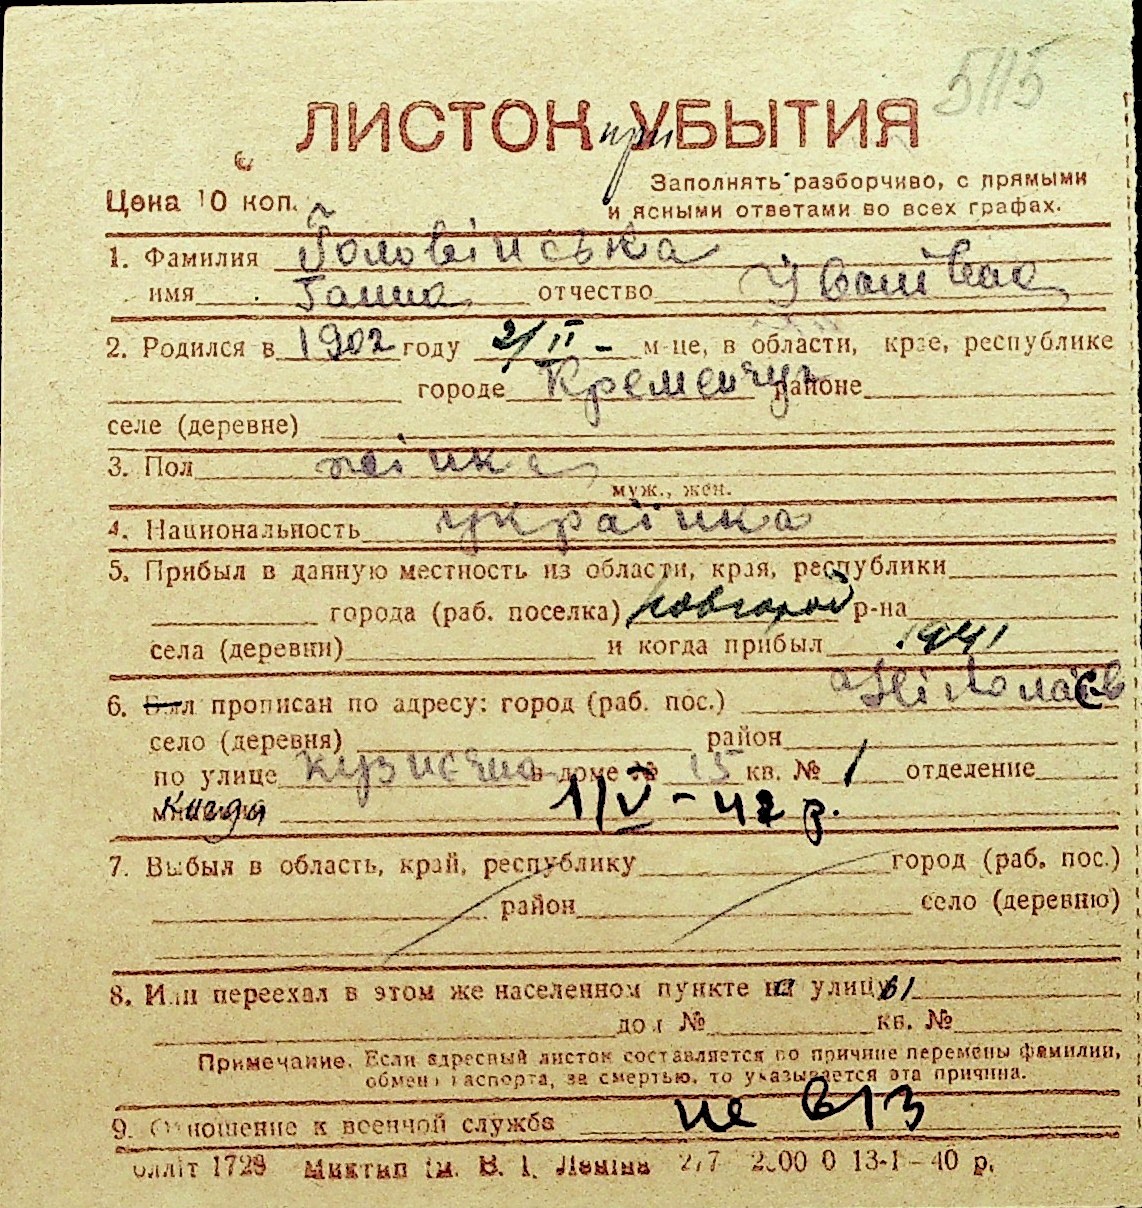 5115
ЛИСТОК при УБЫТИЯ
Цена 10 коп.
Заполнять разборчиво, с прямыми
и ясными ответами во всех графах.
1. Фамилия Головінська
имя Ганна отчество Ивановна
2. Родился в 1902 году 2/II – м-це, в области, крае, республике
городе Кременчуг районе
селе (деревне)
3. Пол жінка
муж., жен.
4. Национальность українка
5. Прибыл в данную местность из области, края, республики
города (раб. поселка) Новгород р-на
села (деревни) и когда прибыл 1941
6. Был прописан по адресу: город (раб. пос.) Ніколаєв
село (деревня) район
по улице Кузнечна в доме № 15 кв. № 1 отделение
Когда 1/V – 42 р.
7. Выбыл в область, край, республику город (раб. пос.)
район село (деревню)
8. Или переехал в этом же населенном пункте на улицу 61
дом № кв. №
Примечание. Если адресный листок составляется по причине перемены фамилии,
обмена паспорта, за смертью, то указывается эта причина.
9. Отношение к военной службе не в/з
олліт 1729 Миктип ім. В. І. Леніна 2000 0 13-I-40 р.